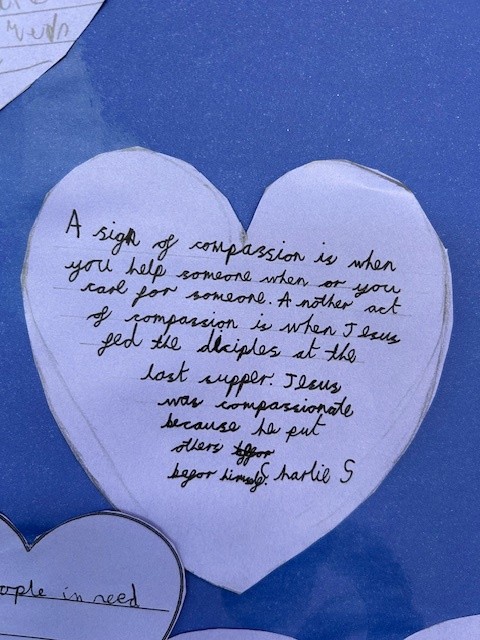 A sign of compassion is when
you help someone when or you
care for someone. A nother act
of compassion is when Jesus
fed the diciples at the
last supper. Jesus
was compassionate
because he put
others
befor himself. Charlie S
ople in need